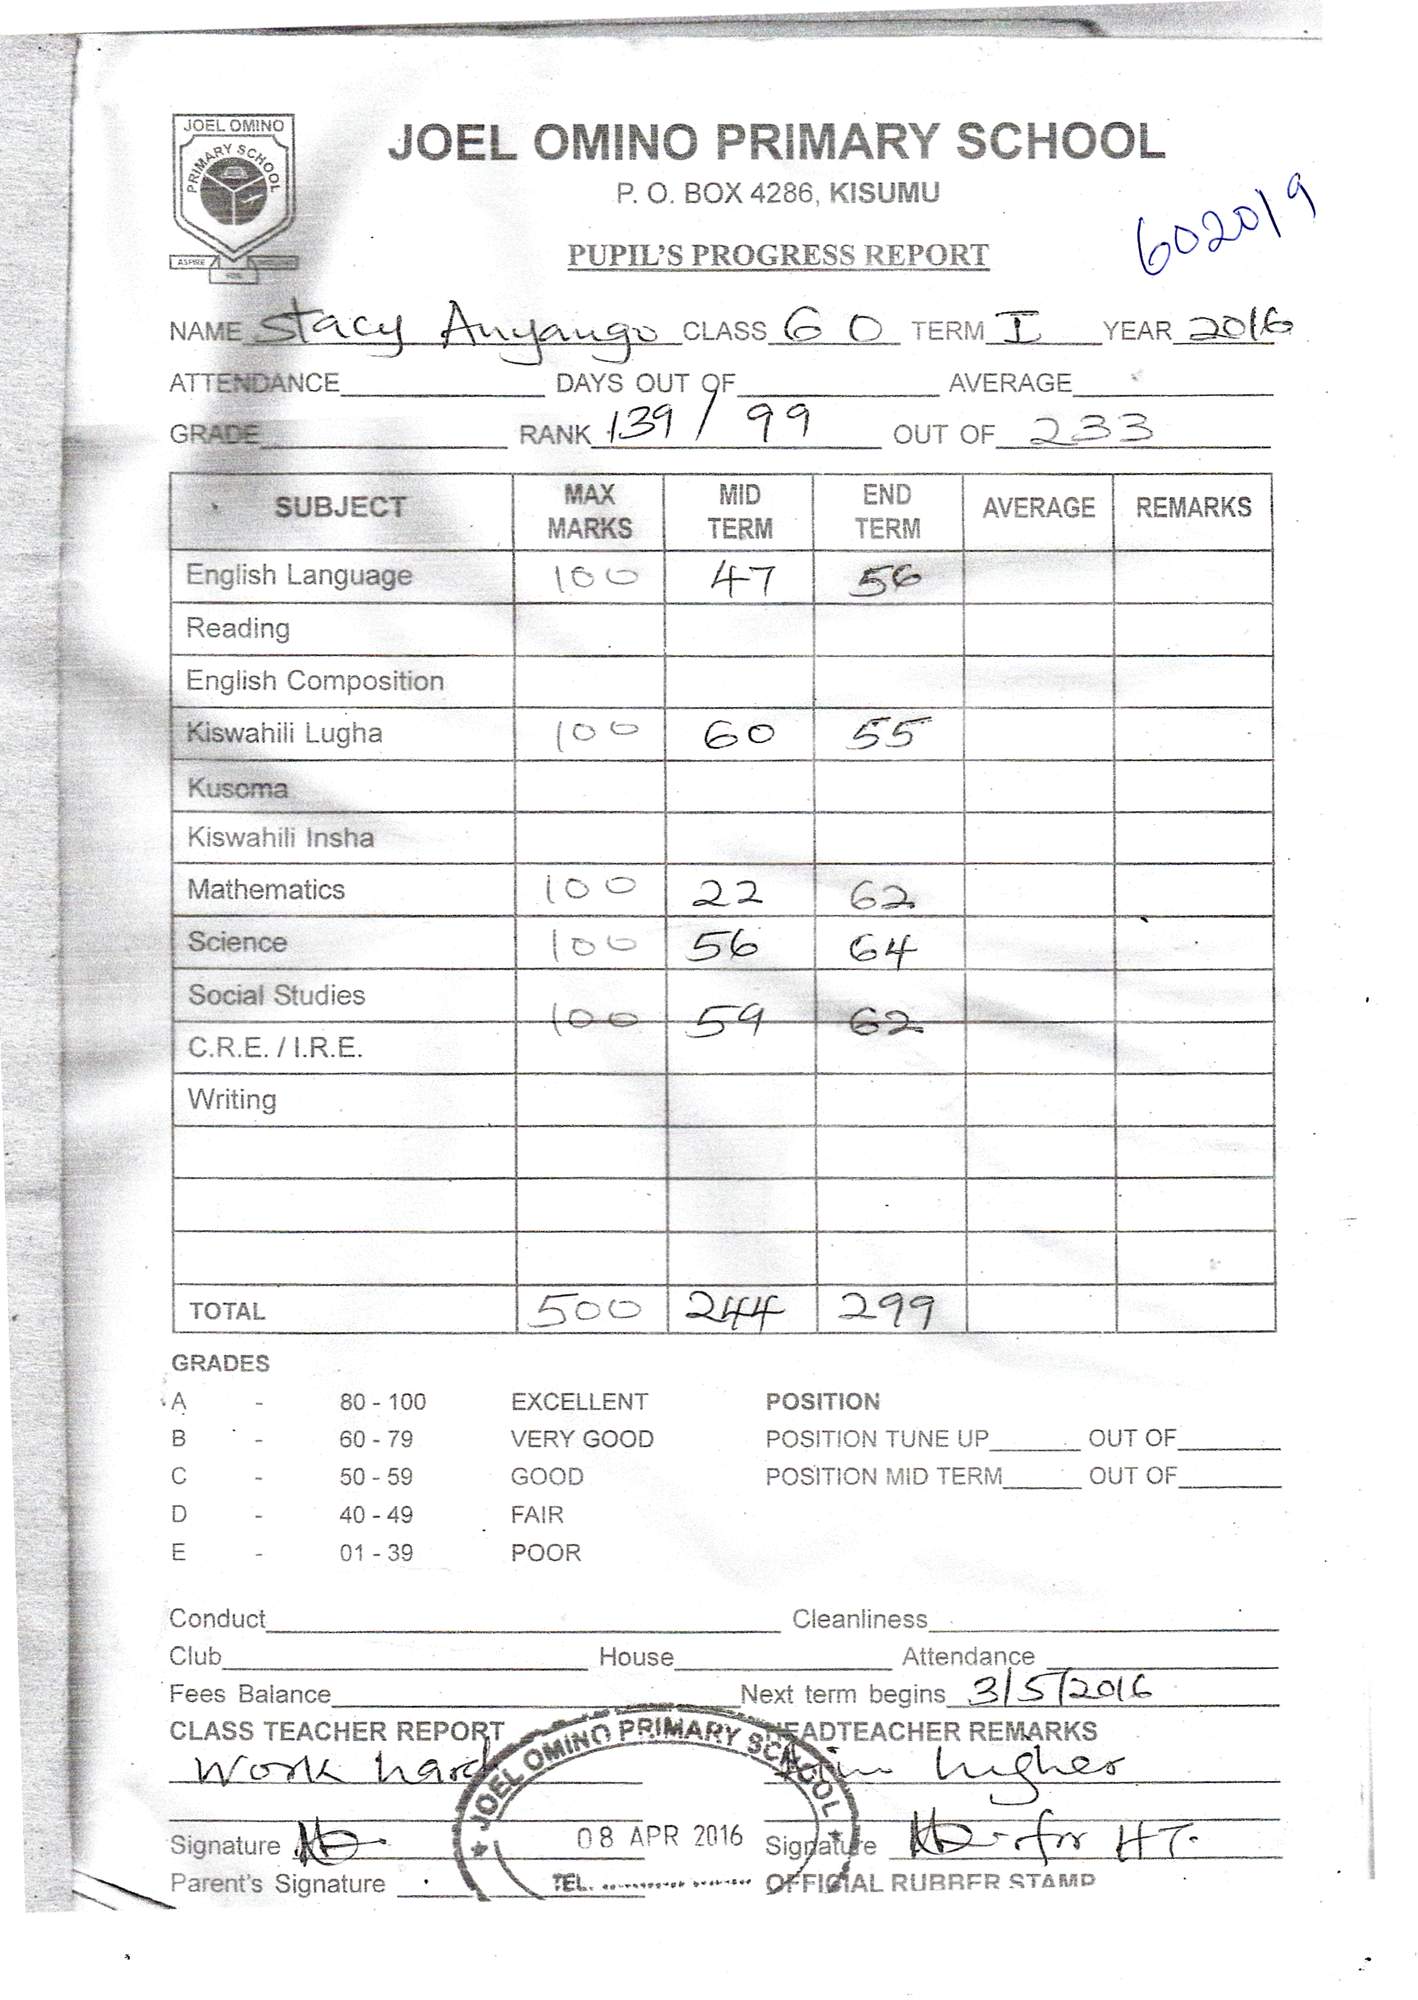 JOEL OMINO
PRIMARY SCHOOL
ASPIRE
JOEL OMINO PRIMARY SCHOOL
P. O. BOX 4286, KISUMU
602019
PUPIL'S PROGRESS REPORT
NAME Stacy Anyango CLASS 6 O TERM I YEAR 2016
ATTENDANCE DAYS OUT OF AVERAGE
GRADE RANK 139 / 99 OUT OF 233
SUBJECT MAX MARKS MID TERM END TERM AVERAGE REMARKS
English Language 100 47 56
Reading
English Composition
Kiswahili Lugha 100 60 55
Kusoma
Kiswahili Insha
Mathematics 100 22 62
Science 100 56 64
Social Studies 100 59 62
C.R.E. / I.R.E.
Writing
TOTAL 500 244 299
GRADES
A - 80 - 100 EXCELLENT POSITION
B - 60 - 79 VERY GOOD POSITION TUNE UP OUT OF
C - 50 - 59 GOOD POSITION MID TERM OUT OF
D - 40 - 49 FAIR
E - 01 - 39 POOR
Conduct Cleanliness
Club House Attendance
Fees Balance Next term begins 3/5/2016
CLASS TEACHER REPORT HEADTEACHER REMARKS
Work hard Aim higher
JOEL OMINO PRIMARY SCHOOL
08 APR 2016
TEL.
Signature Signature for HT.
Parent's Signature OFFICIAL RUBBER STAMP